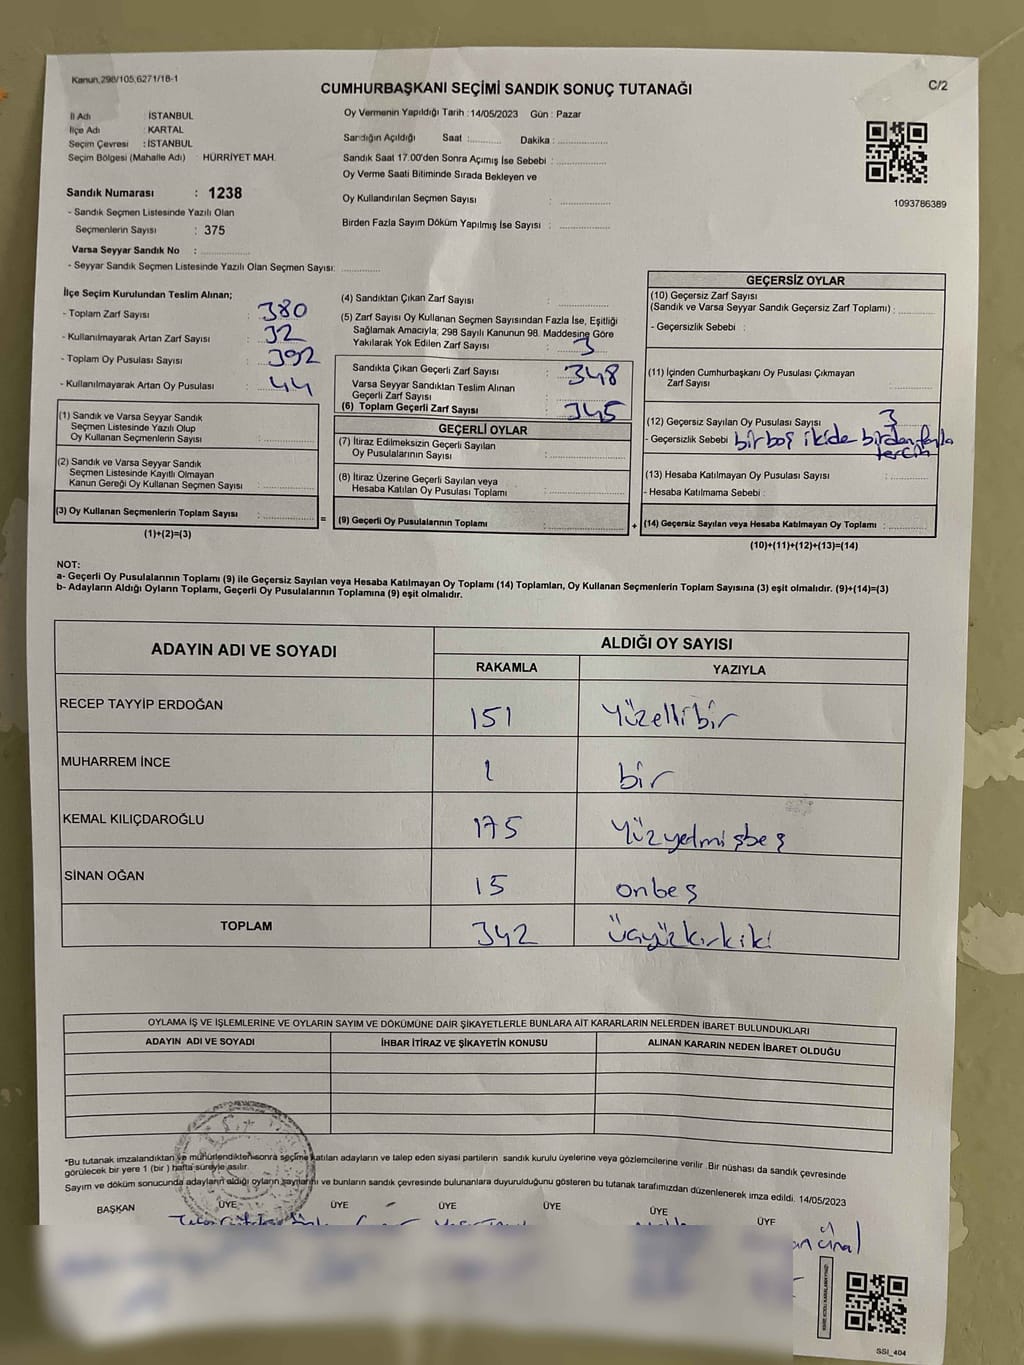 Kanun,298/105,6271/18-1
CUMHURBAŞKANI SEÇİMİ SANDIK SONUÇ TUTANAĞI
C/2
İl Adı İSTANBUL
İlçe Adı : KARTAL
Seçim Çevresi : İSTANBUL
Seçim Bölgesi (Mahalle Adı) : HÜRRİYET MAH.
Sandık Numarası : 1238
- Sandık Seçmen Listesinde Yazılı Olan
Seçmenlerin Sayısı : 375
Varsa Seyyar Sandık No :
- Seyyar Sandık Seçmen Listesinde Yazılı Olan Seçmen Sayısı:
Oy Vermenin Yapıldığı Tarih : 14/05/2023 Gün : Pazar
Sandığın Açıldığı Saat : Dakika :
Sandık Saat 17.00'den Sonra Açımış İse Sebebi :
Oy Verme Saati Bitiminde Sırada Bekleyen ve
Oy Kullandırılan Seçmen Sayısı :
Birden Fazla Sayım Döküm Yapılmış İse Sayısı :
1093786389
İlçe Seçim Kurulundan Teslim Alınan;
- Toplam Zarf Sayısı : 380
- Kullanılmayarak Artan Zarf Sayısı : 32
- Toplam Oy Pusulası Sayısı : 392
- Kullanılmayarak Artan Oy Pusulası : 44
(1) Sandık ve Varsa Seyyar Sandık
Seçmen Listesinde Yazılı Olup
Oy Kullanan Seçmenlerin Sayısı :
(2) Sandık ve Varsa Seyyar Sandık
Seçmen Listesinde Kayıtlı Olmayan
Kanun Gereği Oy Kullanan Seçmen Sayısı :
(3) Oy Kullanan Seçmenlerin Toplam Sayısı :
(1)+(2)=(3)
(4) Sandıktan Çıkan Zarf Sayısı :
(5) Zarf Sayısı Oy Kullanan Seçmen Sayısından Fazla İse, Eşitliği
Sağlamak Amacıyla; 298 Sayılı Kanunun 98. Maddesine Göre
Yakılarak Yok Edilen Zarf Sayısı : 3
Sandıkta Çıkan Geçerli Zarf Sayısı : 348
Varsa Seyyar Sandıktan Teslim Alınan
Geçerli Zarf Sayısı :
(6) Toplam Geçerli Zarf Sayısı : 345
GEÇERLİ OYLAR
(7) İtiraz Edilmeksizin Geçerli Sayılan
Oy Pusulalarının Sayısı :
(8) İtiraz Üzerine Geçerli Sayılan veya
Hesaba Katılan Oy Pusulası Toplamı :
= (9) Geçerli Oy Pusulalarının Toplamı :
GEÇERSİZ OYLAR
(10) Geçersiz Zarf Sayısı
(Sandık ve Varsa Seyyar Sandık Geçersiz Zarf Toplamı) :
- Geçersizlik Sebebi :
(11) İçinden Cumhurbaşkanı Oy Pusulası Çıkmayan
Zarf Sayısı :
(12) Geçersiz Sayılan Oy Pusulası Sayısı : 3
- Geçersizlik Sebebi bir boş ikide birden fazla
tercih
(13) Hesaba Katılmayan Oy Pusulası Sayısı :
- Hesaba Katılmama Sebebi :
+ (14) Geçersiz Sayılan veya Hesaba Katılmayan Oy Toplamı :
(10)+(11)+(12)+(13)=(14)
NOT:
a- Geçerli Oy Pusulalarının Toplamı (9) ile Geçersiz Sayılan veya Hesaba Katılmayan Oy Toplamı (14) Toplamları, Oy Kullanan Seçmenlerin Toplam Sayısına (3) eşit olmalıdır. (9)+(14)=(3)
b- Adayların Aldığı Oyların Toplamı, Geçerli Oy Pusulalarının Toplamına (9) eşit olmalıdır.
ADAYIN ADI VE SOYADI ALDIĞI OY SAYISI
RAKAMLA YAZIYLA
RECEP TAYYİP ERDOĞAN 151 Yüzellibir
MUHARREM İNCE 1 bir
KEMAL KILIÇDAROĞLU 175 Yüzyetmişbeş
SİNAN OĞAN 15 onbeş
TOPLAM 342 Üçyüzkırkiki
OYLAMA İŞ VE İŞLEMLERİNE VE OYLARIN SAYIM VE DÖKÜMÜNE DAİR ŞİKAYETLERLE BUNLARA AİT KARARLARIN NELERDEN İBARET BULUNDUKLARI
ADAYIN ADI VE SOYADI İHBAR İTİRAZ VE ŞİKAYETİN KONUSU ALINAN KARARIN NEDEN İBARET OLDUĞU
*Bu tutanak imzalandıktan ve mühürlendikten sonra seçime katılan adayların ve talep eden siyasi partilerin sandık kurulu üyelerine veya gözlemcilerine verilir. Bir nüshası da sandık çevresinde
görülecek bir yere 1 (bir ) hafta süreyle asılır.
Sayım ve döküm sonucunda adayların aldığı oyların sayılarını ve bunların sandık çevresinde bulunanlara duyurulduğunu gösteren bu tutanak tarafımızdan düzenlenerek imza edildi. 14/05/2023
BAŞKAN ÜYE ÜYE ÜYE ÜYE ÜYE ÜYE
SSI_404